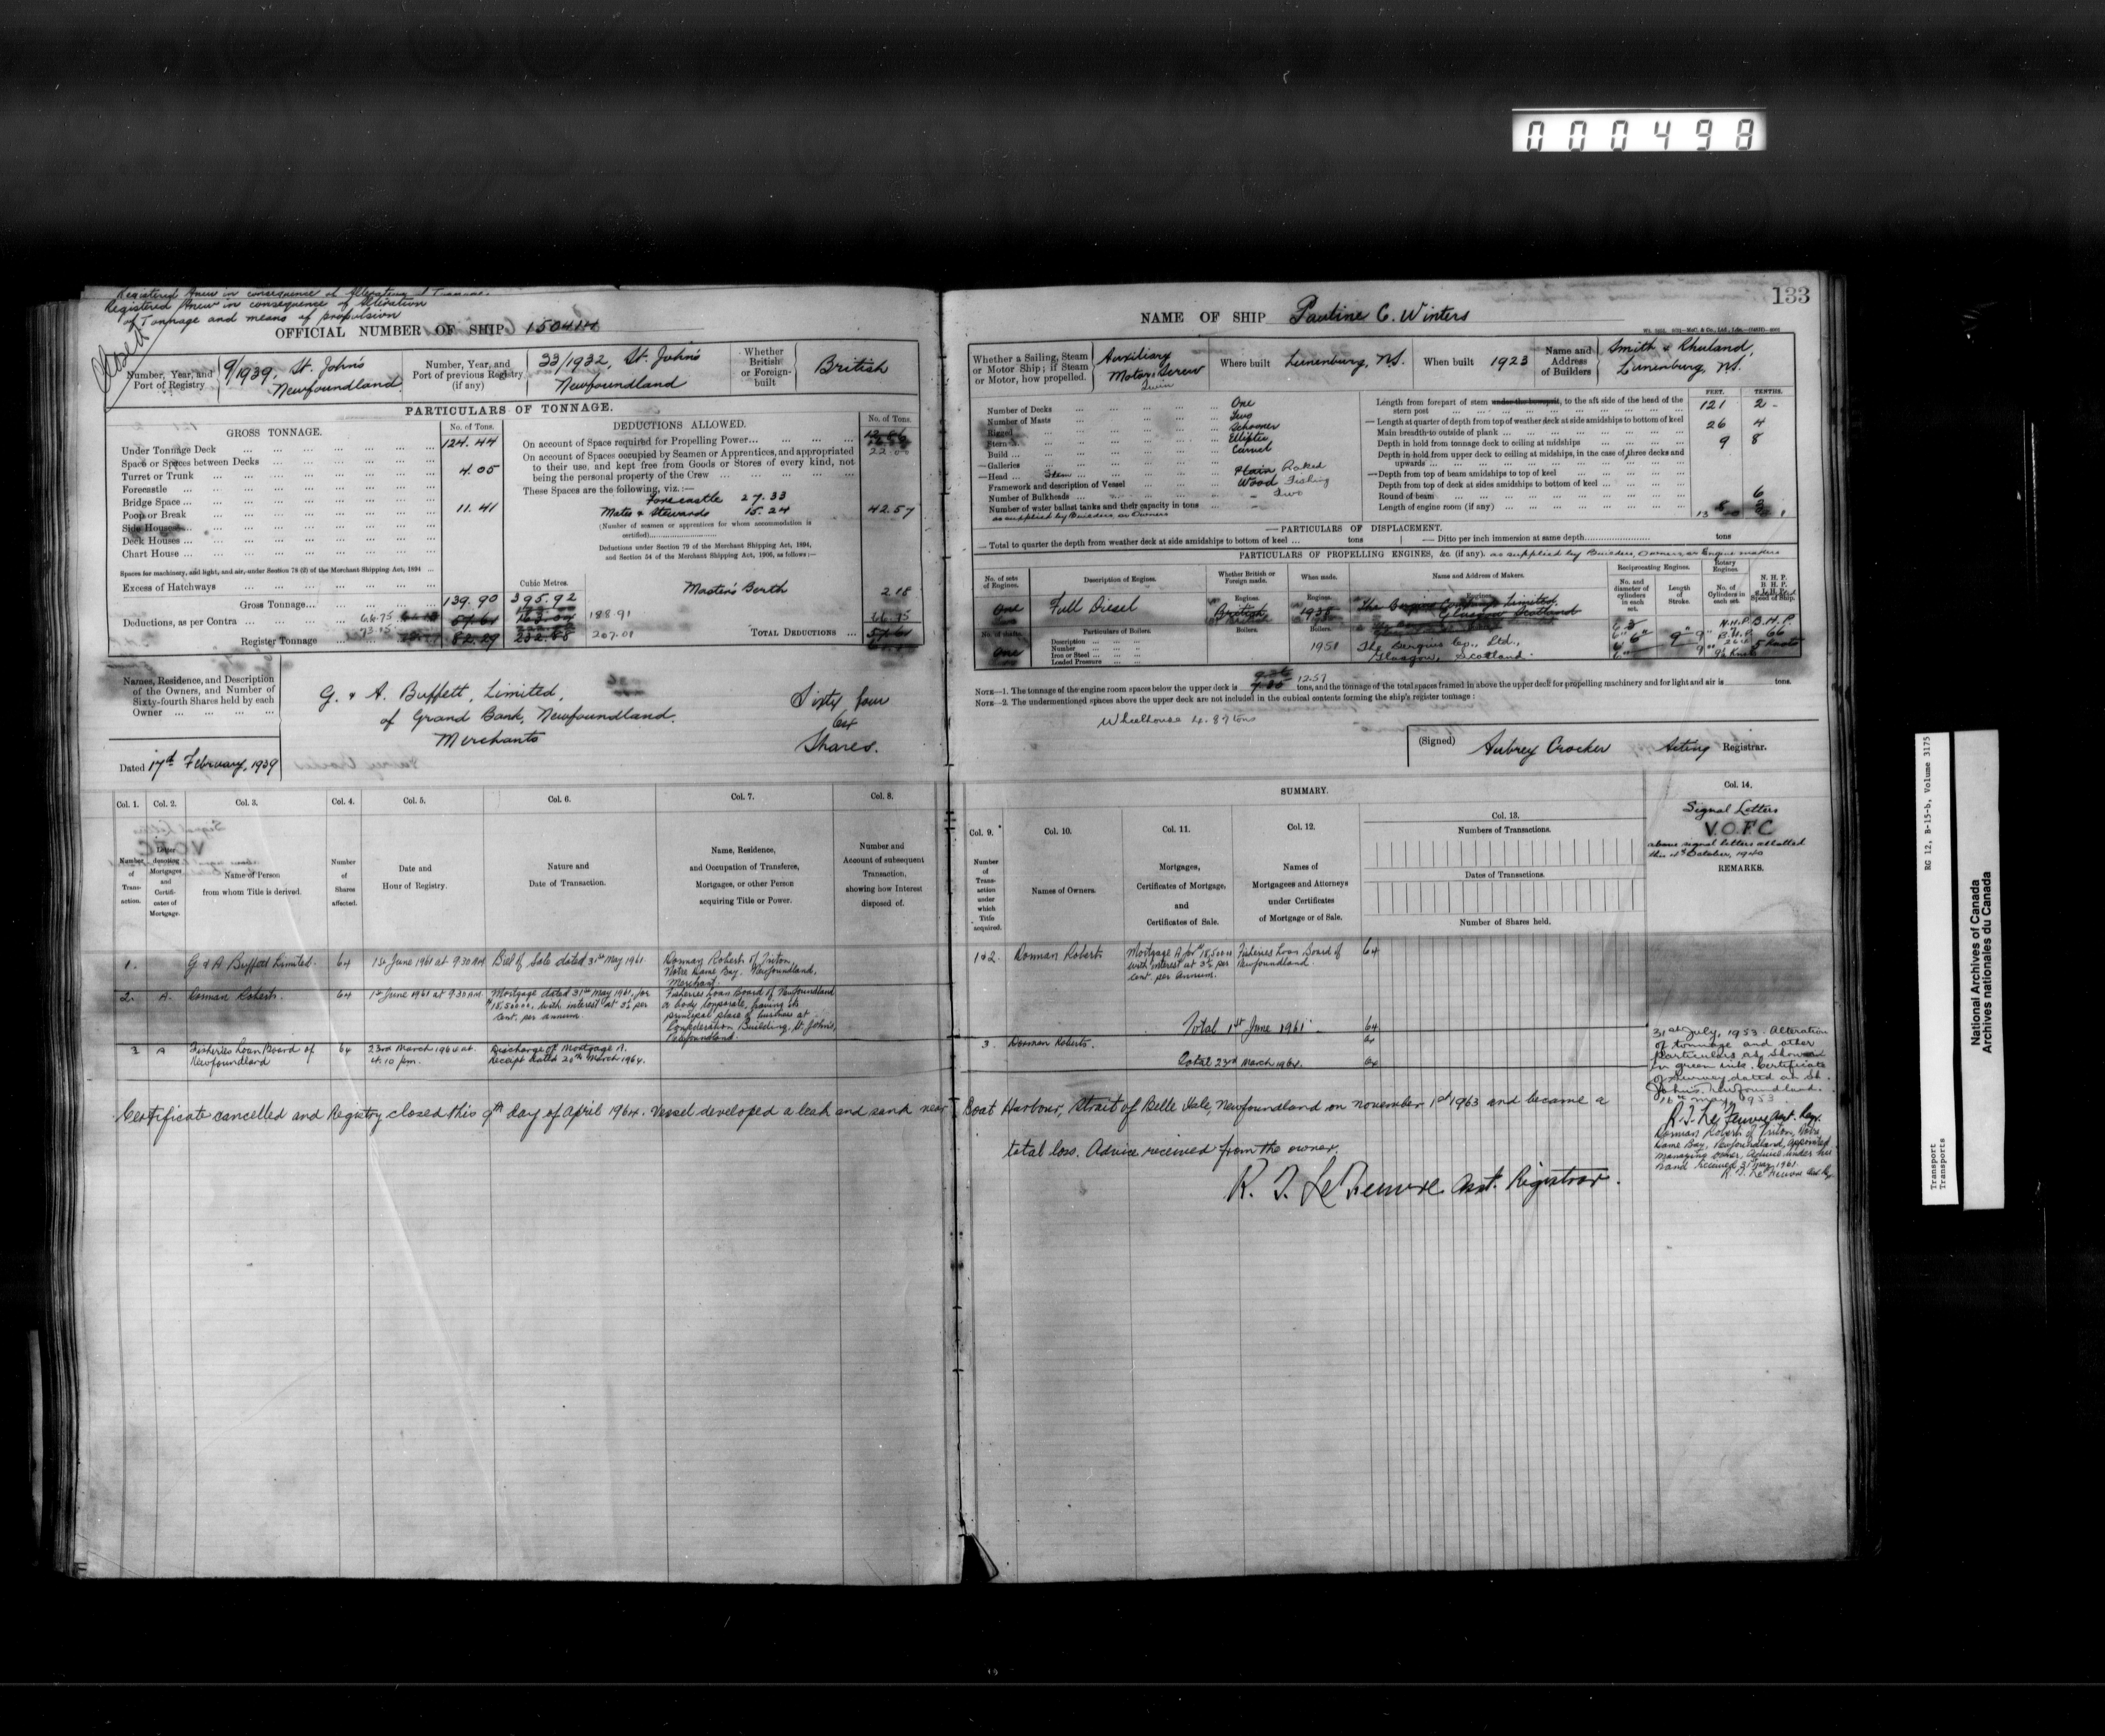 000498
Registered Anew in consequence of Alteration of Tonnage.
Registered Anew in consequence of Alteration
of Tonnage and means of propulsion
Closed
OFFICIAL NUMBER OF SHIP
Number, Year, and Port of Registry 9/1939, St. John's Newfoundland
Number, Year, and Port of previous Registry (if any) 33/1932, St. John's Newfoundland
Whether British or Foreign-built British
PARTICULARS OF TONNAGE.
GROSS TONNAGE. No. of Tons.
Under Tonnage Deck 124.44
Space or Spaces between Decks
Turret or Trunk 4.05
Forecastle
Bridge Space
Poop or Break 11.41
Side Houses
Deck Houses
Chart House
Spaces for machinery, and light, and air, under Section 78 (2) of the Merchant Shipping Act, 1894
Excess of Hatchways
Cubic Metres.
Gross Tonnage 139.90 395.92
Deductions, as per Contra 66.75 57.61 163.04 188.91
Register Tonnage 73.15 82.29 232.88 207.01
DEDUCTIONS ALLOWED. No. of Tons.
On account of Space required for Propelling Power
22.00
On account of Spaces occupied by Seamen or Apprentices, and appropriated
to their use, and kept free from Goods or Stores of every kind, not
being the personal property of the Crew
These Spaces are the following, viz.:—
Forecastle 27.33
Mates & Stewards 15.24 42.57
(Number of seamen or apprentices for whom accommodation is
certified)
Deductions under Section 79 of the Merchant Shipping Act, 1894,
and Section 54 of the Merchant Shipping Act, 1906, as follows:—
Master's Berth 2.18
66.75
TOTAL DEDUCTIONS 57.61
Names, Residence, and Description
of the Owners, and Number of
Sixty-fourth Shares held by each
Owner
G. & A. Buffett, Limited, Sixty four
of Grand Bank, Newfoundland. 64
Merchants Shares.
Dated 17th February, 1939
Col. 1. Col. 2. Col. 3. Col. 4. Col. 5. Col. 6. Col. 7. Col. 8.
Number of Transaction.
Letter denoting Mortgages and Certificates of Mortgage.
Name of Person from whom Title is derived.
Number of Shares affected.
Date and Hour of Registry.
Nature and Date of Transaction.
Name, Residence, and Occupation of Transferee, Mortgagee, or other Person acquiring Title or Power.
Number and Account of subsequent Transaction, showing how Interest disposed of.
1. G & A Buffett Limited. 64 1st June 1961 at 9.30 AM Bill of Sale dated 31st May 1961. Dorman Roberts of Triton, Notre Dame Bay, Newfoundland, Merchant.
2. A. Dorman Roberts. 64 1st June 1961 at 9.30 AM Mortgage dated 31st May 1961, for $18,500.00, with interest at 3½ per cent. per annum. Fisheries Loan Board of Newfoundland a body corporate, having its principal place of business at Confederation Building, St. John's, Newfoundland.
3 A Fisheries Loan Board of Newfoundland 64 23rd March 1964 at 4.10 pm. Discharge of Mortgage A. Receipt dated 20th March 1964.
NAME OF SHIP Pauline C. Winters
133
Whether a Sailing, Steam or Motor Ship; if Steam or Motor, how propelled. Auxiliary Motor, Screw Twin
Where built Lunenburg, N.S.
When built 1923
Name and Address of Builders Smith & Rhuland, Lunenburg, N.S.
FEET. TENTHS.
Number of Decks One
Number of Masts Two
Rigged Schooner
Stern Elliptic
Build Carvel
Galleries
Head Stem Plain Raked
Framework and description of Vessel Wood Fishing
Number of Bulkheads Two
Number of water ballast tanks and their capacity in tons
as supplied by Builders or Owners
Length from forepart of stem under the bowsprit, to the aft side of the head of the stern post 121 2
Length at quarter of depth from top of weather deck at side amidships to bottom of keel
Main breadth to outside of plank 26 4
Depth in hold from tonnage deck to ceiling at midships 9 8
Depth in hold from upper deck to ceiling at midships, in the case of three decks and upwards
Depth from top of beam amidships to top of keel
Depth from top of deck at sides amidships to bottom of keel
Round of beam 6
Length of engine room (if any)
PARTICULARS OF DISPLACEMENT.
Total to quarter the depth from weather deck at side amidships to bottom of keel tons Ditto per inch immersion at same depth tons
PARTICULARS OF PROPELLING ENGINES, &c. (if any). as supplied by Builders, Owners or Engine makers
No. of sets of Engines. Description of Engines. Whether British or Foreign made. When made. Name and Address of Makers. Reciprocating Engines. Rotary Engines.
No. and diameter of cylinders in each set. Length of Stroke. No. of Cylinders in each set. N.H.P. B.H.P. Speed of Ship.
One Full Diesel British 1938
Particulars of Boilers.
Description
Number
Iron or Steel
Loaded Pressure
One 1951 The Bergius Co., Ltd., Glasgow, Scotland.
NOTE—1. The tonnage of the engine room spaces below the upper deck is 12.57 tons, and the tonnage of the total spaces framed in above the upper deck for propelling machinery and for light and air is tons.
NOTE—2. The undermentioned spaces above the upper deck are not included in the cubical contents forming the ship's register tonnage:
Wheelhouse 4.87 tons
(Signed) Aubrey Crocker Acting Registrar.
SUMMARY.
Col. 9. Col. 10. Col. 11. Col. 12. Col. 13. Col. 14.
Number of Transaction under which Title acquired.
Names of Owners.
Mortgages, Certificates of Mortgage, and Certificates of Sale.
Names of Mortgagees and Attorneys under Certificates of Mortgage or of Sale.
Numbers of Transactions.
Dates of Transactions.
Number of Shares held.
Signal Letters
V.O.F.C
above signal letters allotted
this 4th October, 1940
REMARKS.
1&2. Dorman Roberts Mortgage A for $18,500.00 with interest at 3½ per cent. per annum. Fisheries Loan Board of Newfoundland. 64
Total 1st June 1961 64
3. Dorman Roberts. 64
Total 23rd March 1964. 64
31st July, 1953. Alteration
of tonnage and other
particulars as shown
in green ink. Certificate
of survey dated at St.
John's, Newfoundland.
16th May, 1953.
Dorman Roberts of Triton, Notre
Dame Bay, Newfoundland, appointed
managing owner, advice under his
hand received 31 May 1961.
Certificate cancelled and Registry closed this 9th day of April 1964. Vessel developed a leak and sank near Boat Harbour, Strait of Belle Isle, Newfoundland on November 1st 1963 and became a
total loss. Advice received from the owner.
Asst. Registrar.
RG 12, B-15-b, Volume 3175
Transport
Transports
National Archives of Canada
Archives nationales du Canada